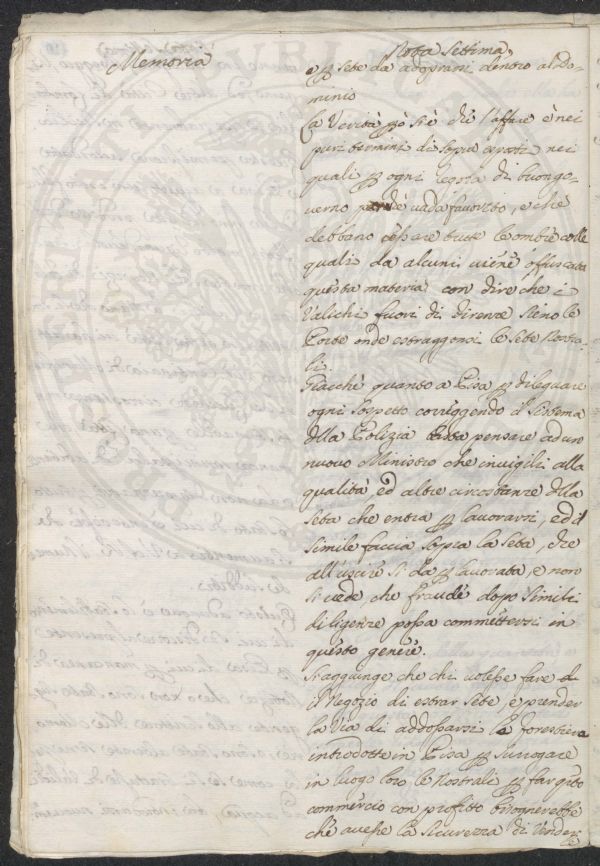 Memoria
Nota Settima
e p sete da adoprarsi dentro al do-
minio
La Verità però si è che l'affare è nei
puri termini di sopra esposti nei
quali p ogni regola di buongo-
verno par che vada favorito, e che
debbano cessare tutte l'ombre colle
quali da alcuni viene offuscata
questa materia con dire che i
Valichi fuori di Firenze sieno le
Porte onde estraggonsi le Sete Nostra-
li.
Giacchè quanto a Pisa p dileguare
ogni sospetto correggendo il Sistema
della Polizia basta pensare ad un
nuovo Ministro che invigili alla
qualità, ed altre circostanze della
Seta che entra p lavorarsi, ed il
simile faccia sopra la Seta, che
all'uscire si dà p lavorata, e non
si vede, che fraude dopo simili
diligenze possa commettersi in
questo genere.
Si aggiunge che chi volesse fare
il Negozio di estrar Sete, e prender
la Via di addossarsi le forestiere
introdotte in Pisa p surrogare
in luogo loro le Nostrali p far qsto
commercio con profitto bisognerebbe
che avesse la sicurezza di vender